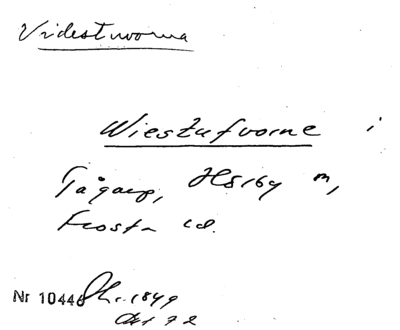 Videstuvorna
Wiestufvorne i
Tågarp, Hsiby m,
Frosta hd.
Nr 10446 Chr. 1849
Akt 92